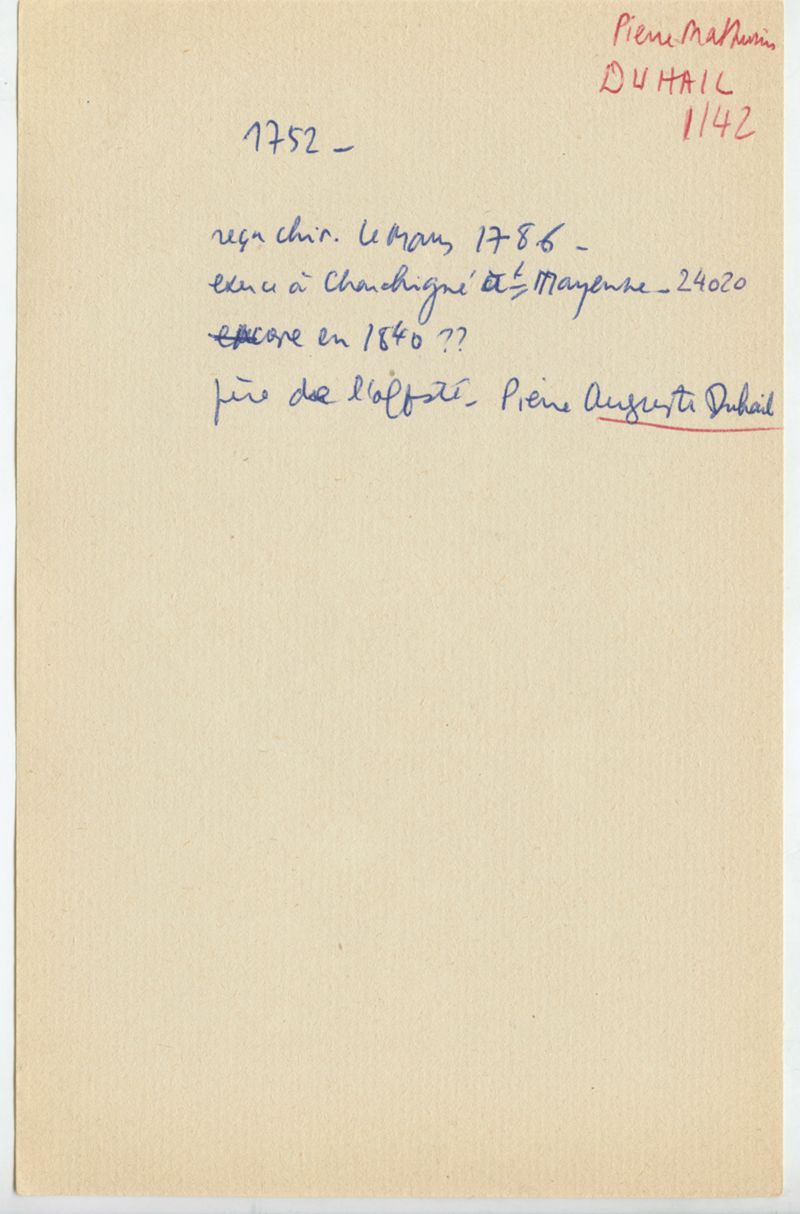 Pierre Mathurin
DUHAIL
1/42
1752 –
reçu chir. Le Mans 1786 –
exerce à Charchigné Mayenne – 24020
encore en 1840 ??
père de l'off. Pierre Auguste Duhail